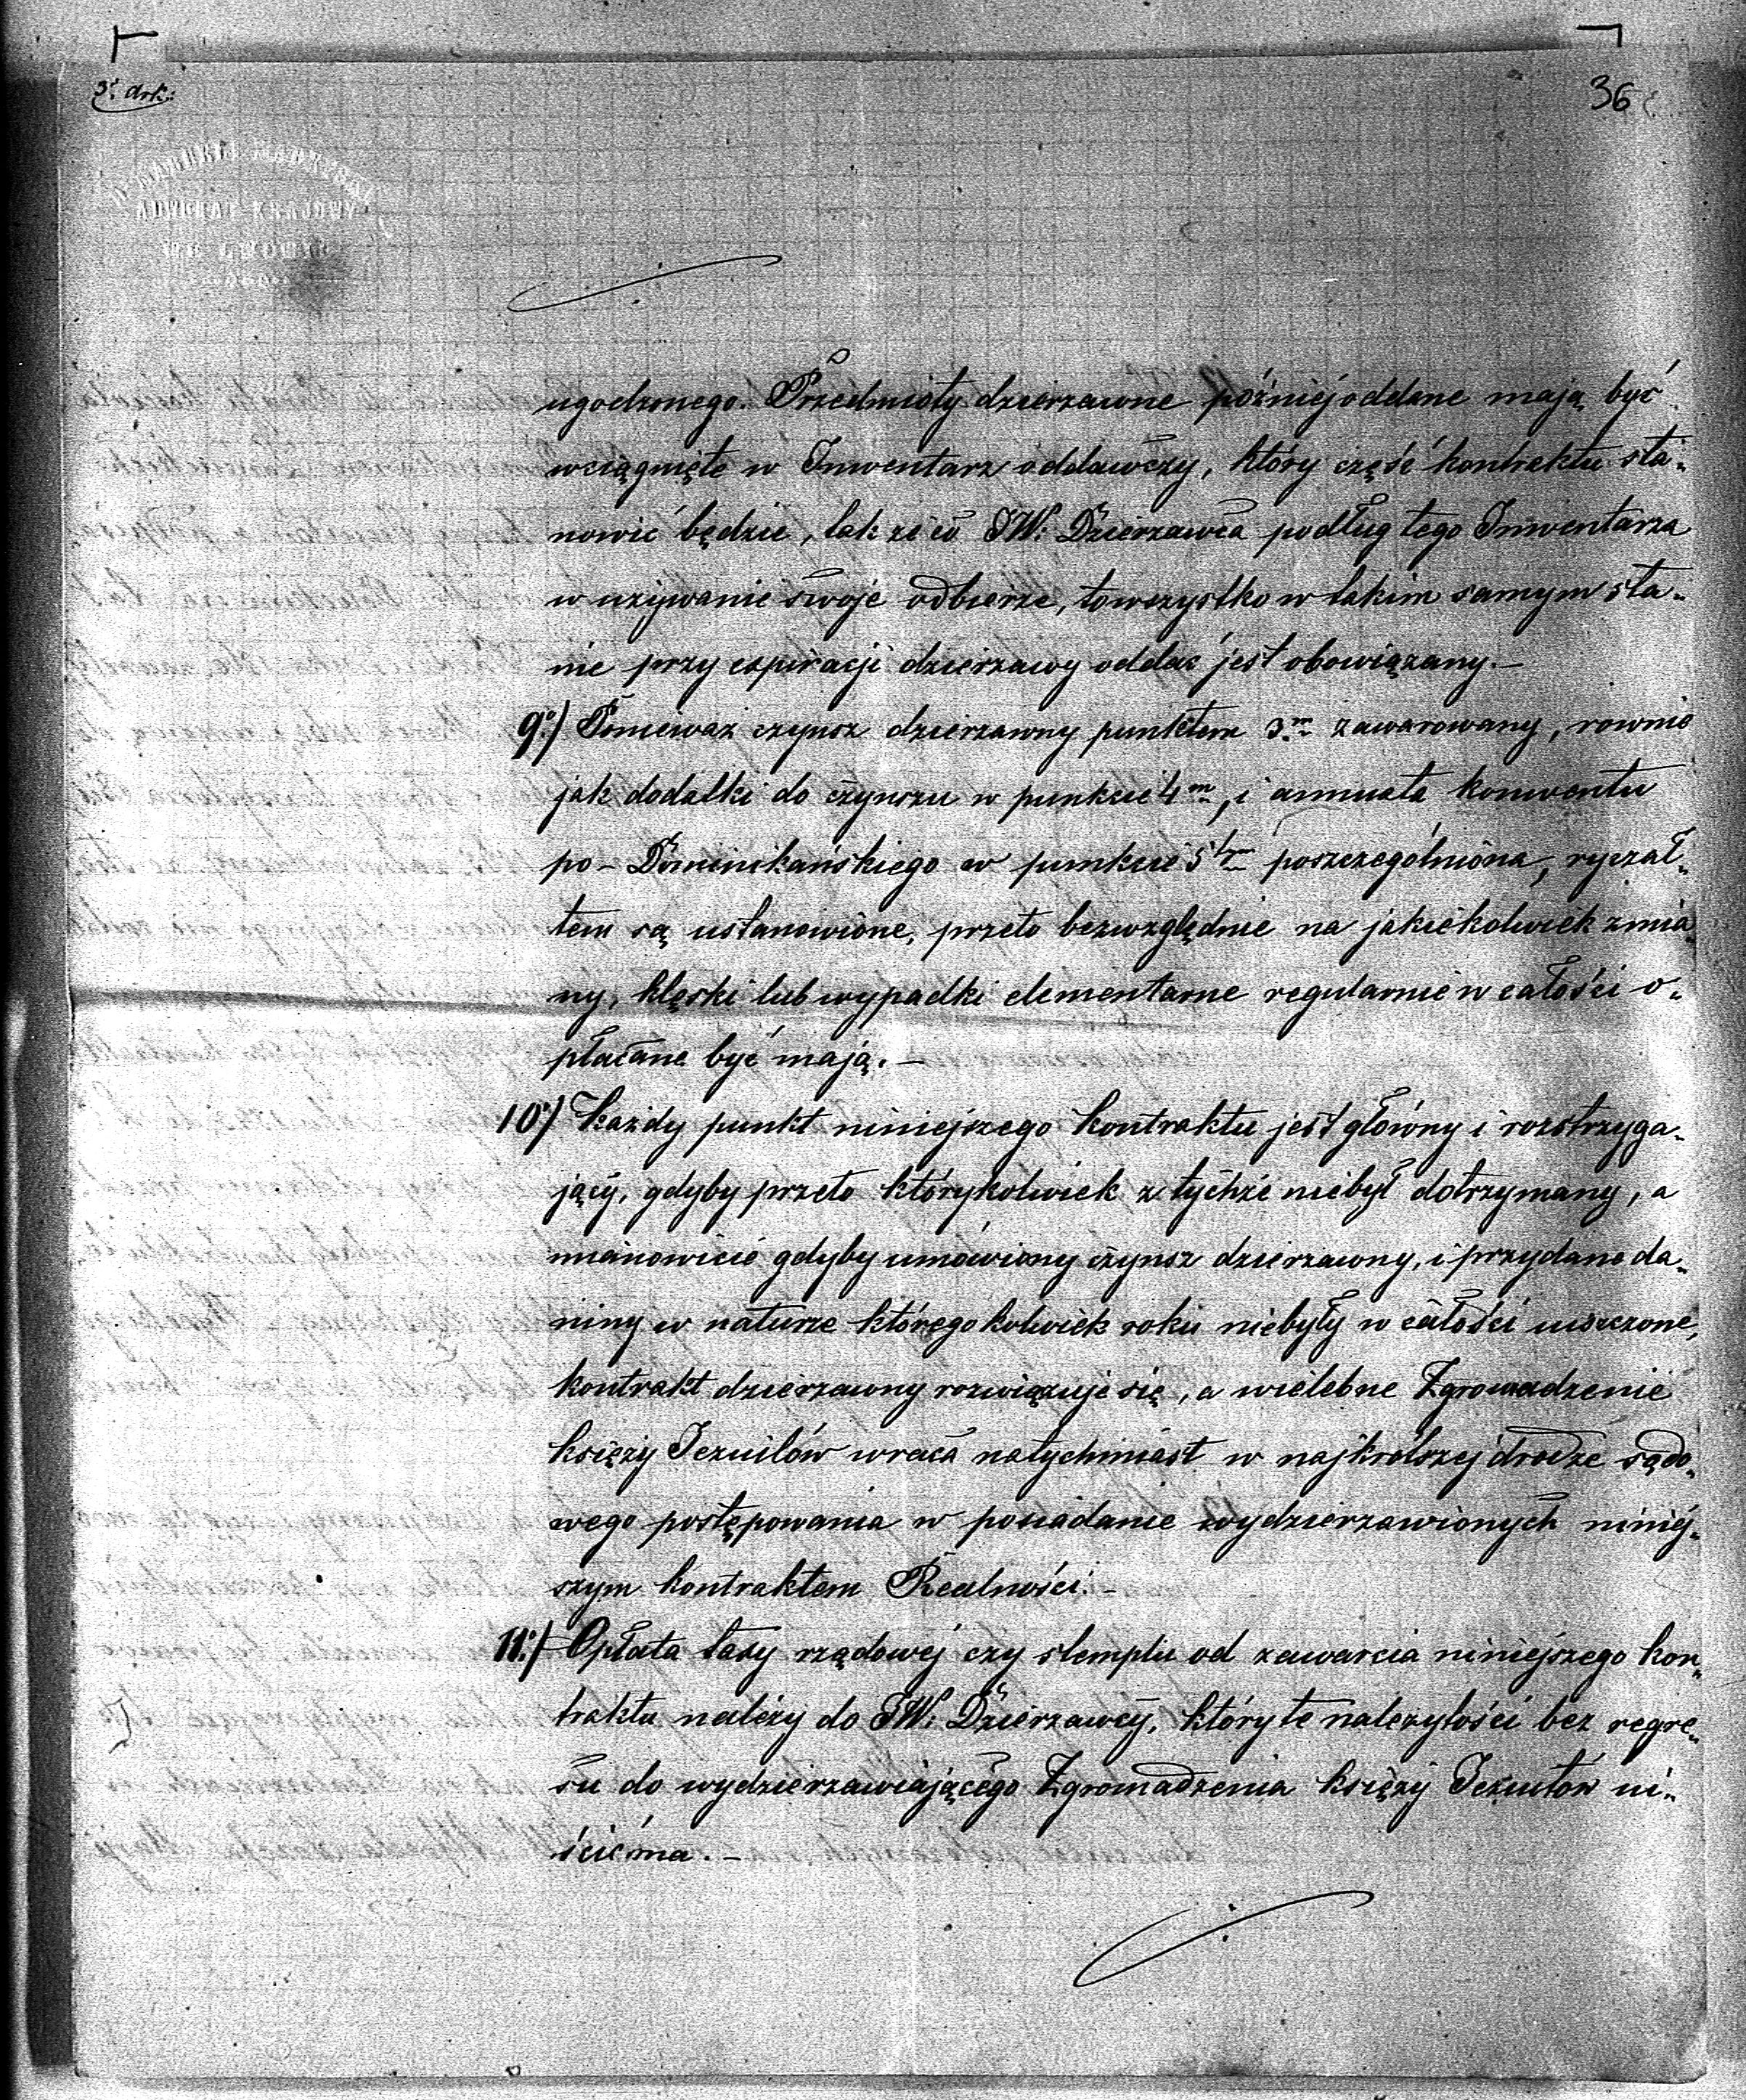 3. Ark.
36
ADWOKAT KRAJOWY
WE LWOWIE
ugodzonego. Przedmioty dzierzawne później oddane mają być
wciągnięte w Inwentarz oddawczy, który część kontraktu sta-
nowić będzie, tak ze co JW: Dzierzawca podług tego Inwentarza
w uzywanie swoje odbierze, to wszystko w takim samym sta-
nie przy expiracji dzierzawy oddać jest obowiązany.—
9.) Poniewaz czynsz dzierzawny punktem 3m zawarowany, rownie
jak dodatki do czynszu w punkcie 4m, i annuata konwentu
po-Dominikańskiego w punkcie 5tm poszczególniona, ryczał-
tem są ustanowione, przeto bezwzględnie na jakiekolwiek zmia-
ny, klęski lub wypadki elementarne regularnie w całości o-
płacane być mają.—
10.) Kazdy punkt niniejszego kontraktu jest główny i rozstrzyga-
jący, gdyby przeto którykolwiek z tychze niebył dotrzymany, a
mianowicie gdyby umówiony czynsz dzierzawny, i przydane da-
niny w naturze któregokolwiek roku niebyły w całości uiszczone,
kontrakt dzierzawny rozwiązuje się, a wielebne Zgromadzenie
księzy Jezuitów wraca natychmiast w najkrótszej drodze sądo-
wego postępowania w posiadanie wydzierzawionych niniej-
szym kontraktem Realności.—
11.) Opłata taxy rządowej czy stemplu od zawarcia niniejszego kon-
traktu nalezy do JW: Dzierzawcy, który te nalezytości bez regre-
su do wydzierzawiającego Zgromadzenia księzy Jezuitów ui-
ścić ma.—